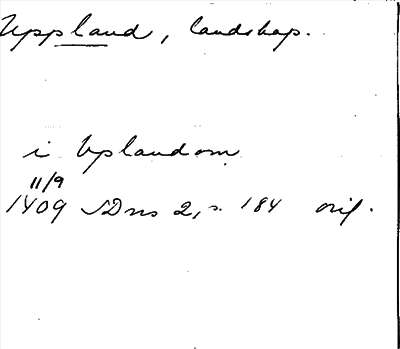 Uppland, landskap.
i Uplandom
11/9
1409 SDns 2, s. 184 orig.